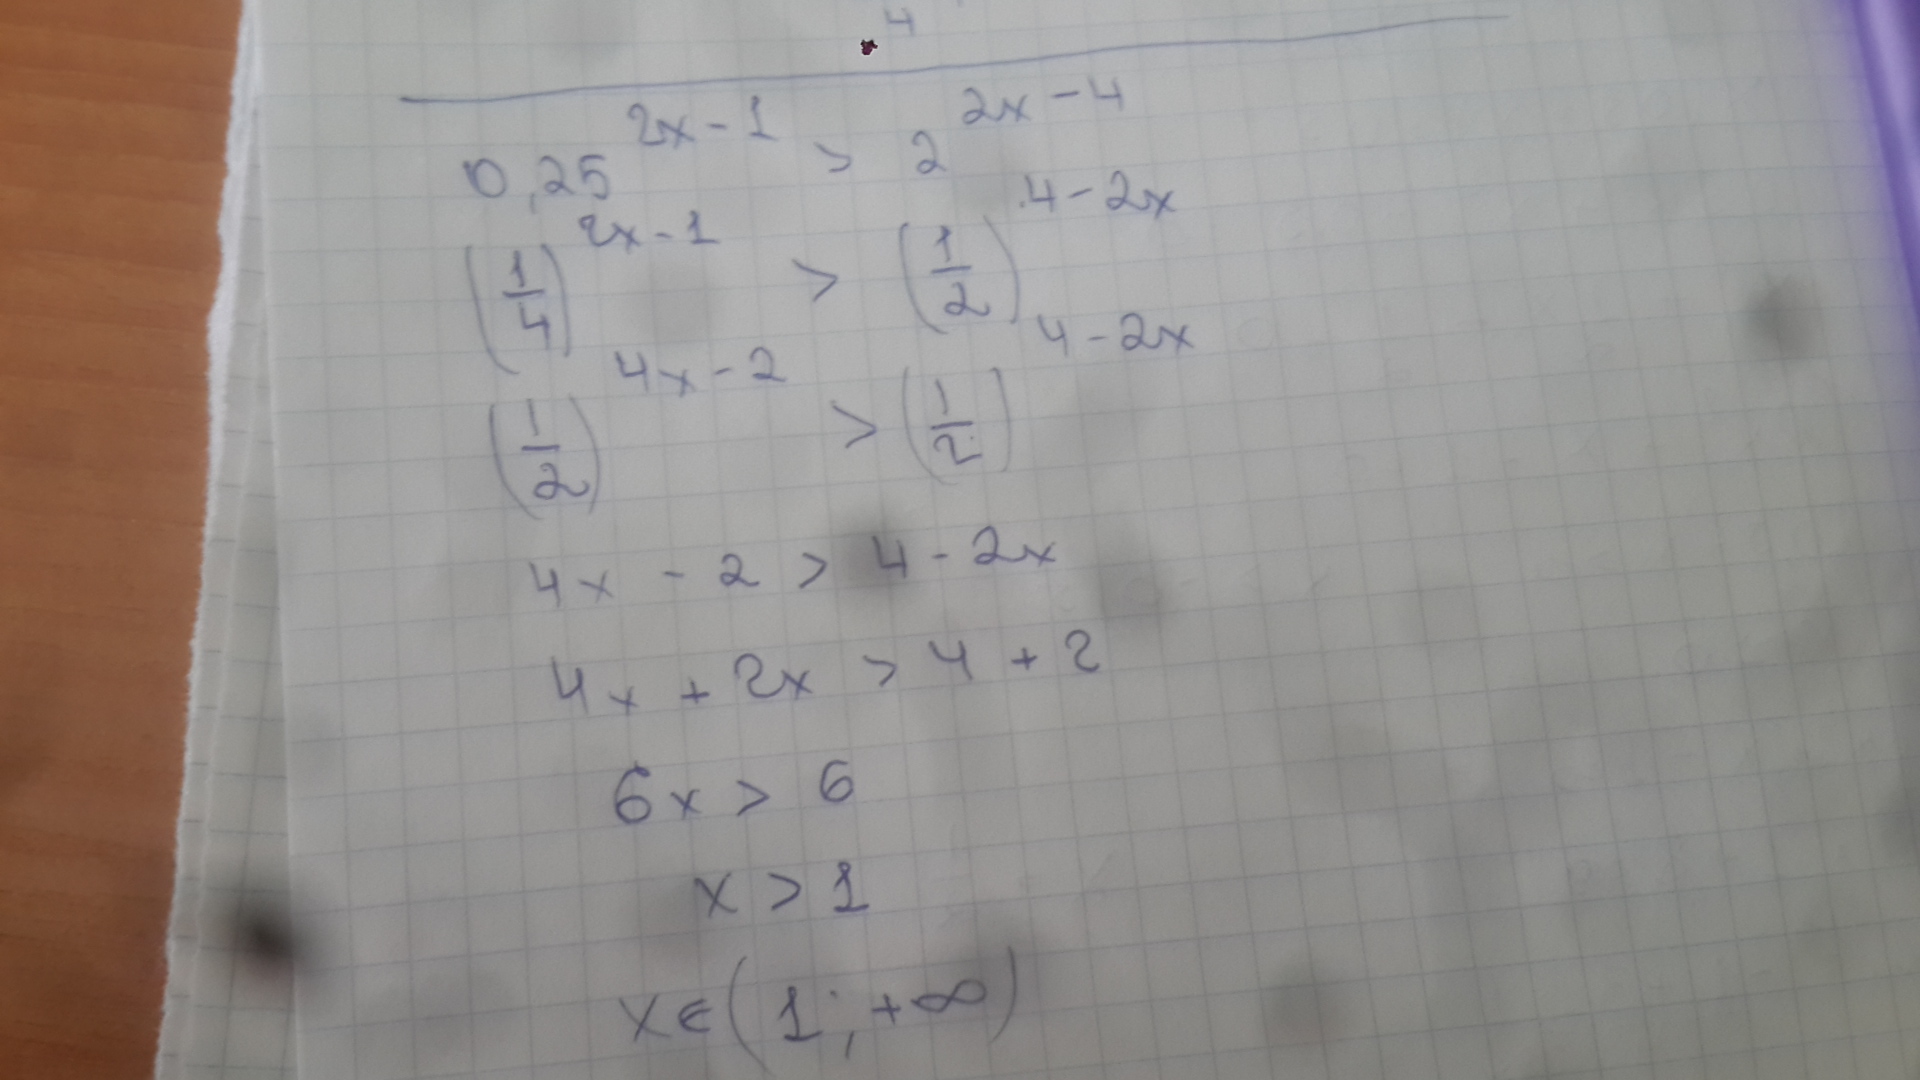 4
0,25^(2x-1) > 2^(2x-4)
(1/4)^(2x-1) > (1/2)^(4-2x)
(1/2)^(4x-2) > (1/2)^(4-2x)
4x - 2 > 4 - 2x
4x + 2x > 4 + 2
6x > 6
x > 1
x∈(1; +∞)